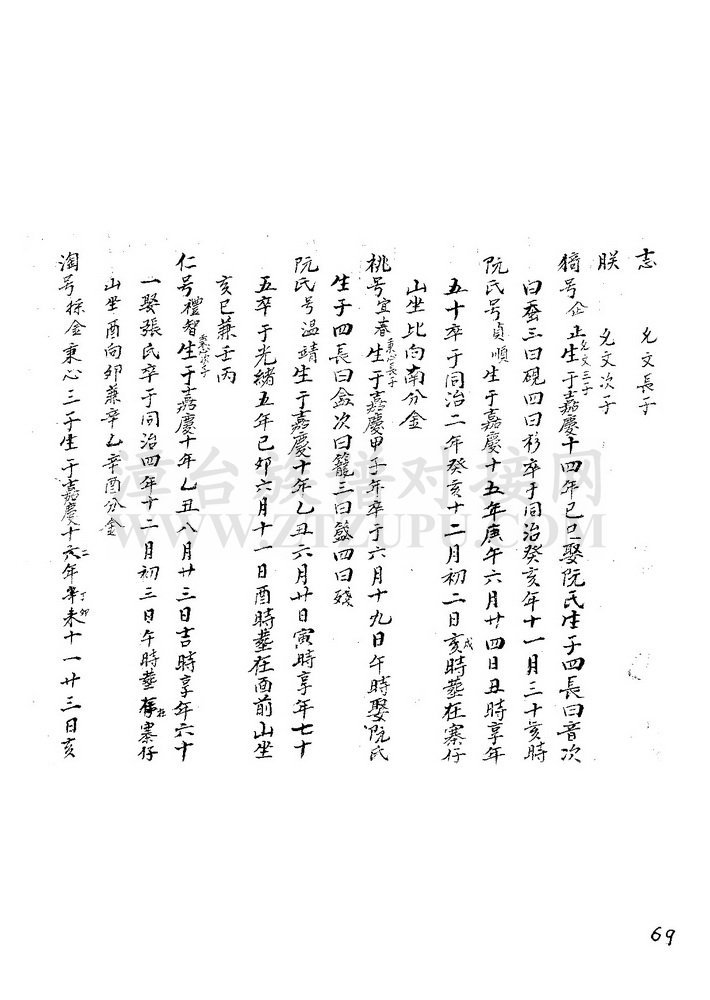 志 允文長子
朕 允文次子
猗号企正允文三子生于嘉慶十四年己巳娶阮氏生子四長曰音次
曰蚕三曰硯四曰衫卒于同治癸亥年十一月三十亥時
阮氏号貞順生于嘉慶十五年庚午六月廿四日丑時享年
五十卒于同治二年癸亥十二月初二日亥戌時塟在寨仔
山坐比向南分金
桃号宜春秉心長子生于嘉慶甲子年卒于六月十九日午時娶阮氏
生子四長曰盒次曰籠三曰盤四曰殘
阮氏号温靖生于嘉慶十年乙丑六月廿日寅時享年七十
五卒于光緒五年己卯六月十一日酉時塟在面前山坐
亥巳兼壬丙
仁号禮智秉心次子生于嘉慶十年乙丑八月廿三日吉時享年六十
一娶張氏卒于同治四年十二月初三日午時塟在寨仔
山坐酉向卯兼辛乙辛酉分金
淘号採金秉心三子生于嘉慶十六二年辛未丁卯十一廿三日亥
漳台族谱对接网
WWW.ZTZUPU.COM
69